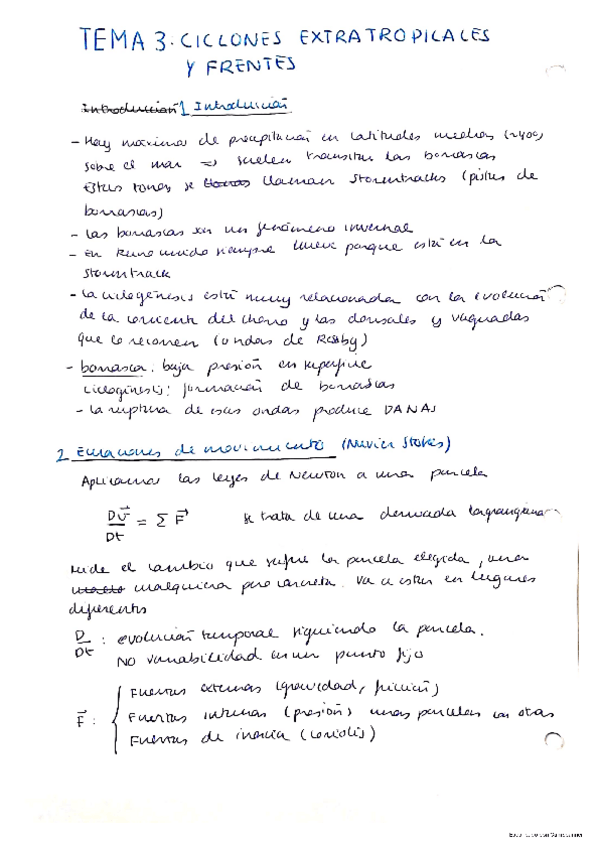 TEMA 3. CICLONES EXTRATROPICALES
Y FRENTES
Introducción 1 Introducción
- Hay máximos de precipitación en latitudes medias (~40º)
sobre el mar => suelen transitar las borrascas
Estas zonas se llaman stormtracks (pistas de
borrascas)
- Las borrascas son un fenómeno invernal
- En Reino Unido siempre llueve porque está en la
stormtrack
- La ciclogénesis está muy relacionada con la evolución
de la corriente del chorro y las dorsales y vaguadas
que lo recorren (ondas de Rossby)
- borrasca: baja presión en superficie
ciclogénesis: formación de borrascas
- La ruptura de esas ondas produce DANAS
2 Ecuaciones de movimiento (Navier Stokes)
Aplicamos las leyes de Newton a una parcela
Dv⃗/Dt = Σ F⃗ se trata de una derivada lagrangiana
Mide el cambio que sufre la parcela elegida, una
cualquiera pero concreta. Va a estar en lugares
diferentes
D/Dt : evolución temporal siguiendo la parcela.
NO variabilidad en un punto fijo
F⃗ : { Fuerzas externas (gravedad, fricción)
Fuerzas internas (presión) unas parcelas con otras
Fuerzas de inercia (coriolis)